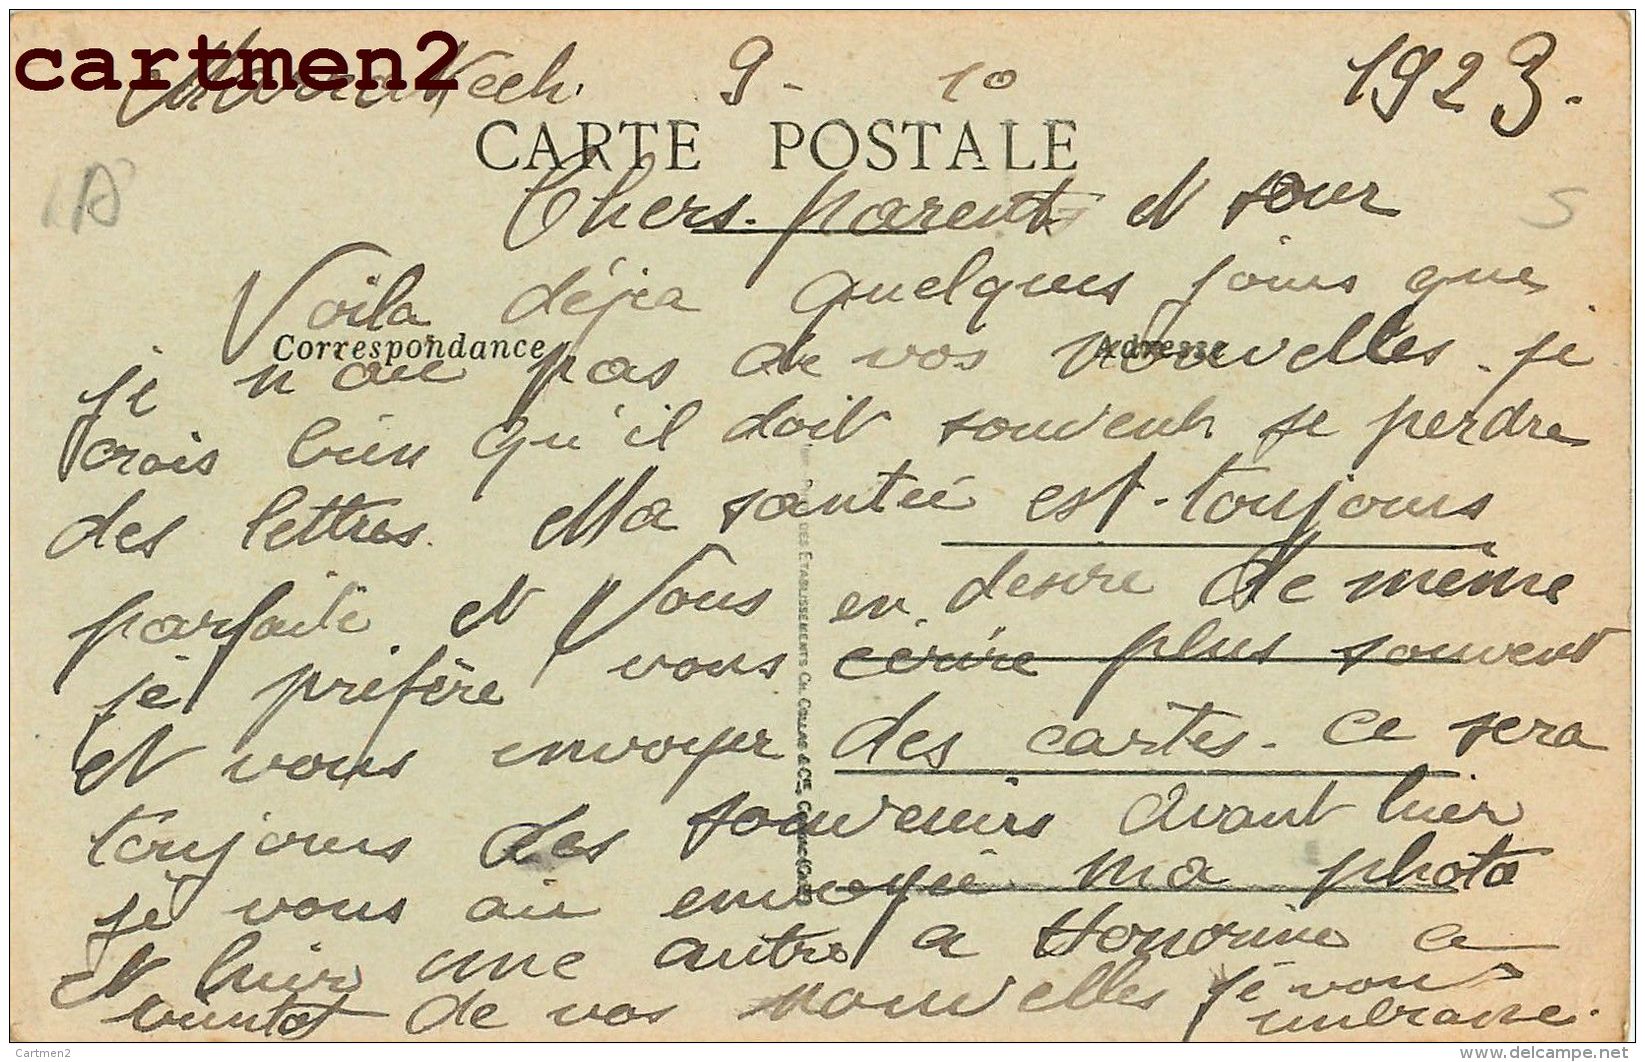 cartmen2
Marrakech. 9 - 10 1923.
CARTE POSTALE
Chers parents et sœur
Voila déja quelques jours que
Correspondance Adresse
je n'ai pas de vos nouvelles. je
crois bien qu'il doit souvent se perdre
des lettres. Ma santée est toujours
parfaite et vous en desire de même
je préfère vous ecrire plus souvent
et vous envoyer des cartes. Ce sera
toujours des souvenirs avant hier
je vous ai envoyée ma photo
et hier une autre a Honorine a
bientot de vos nouvelles je vous
embrasse.
DES ÉTABLISSEMENTS CH. COLLAS & CIE, COGNAC
Cartmen2
delcampe.net